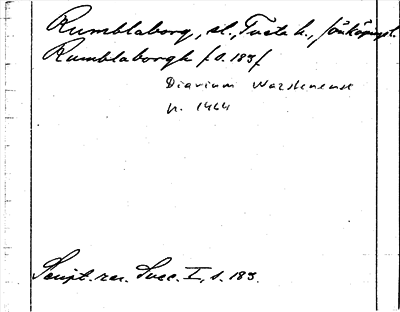 Rumblaborg, sl., Tveta h., Jönköpings l.
Rumblaborgh /s. 183/
Diarium Wazstenense
n. 1464
Script. rer. Svec. I, s. 183.